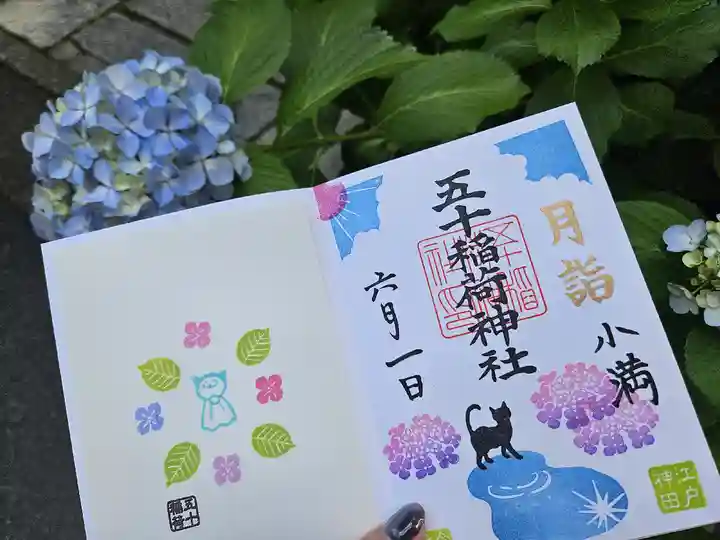 月詣
小満
五十稲荷神社
六月一日
江戸
神田
五十
稲荷